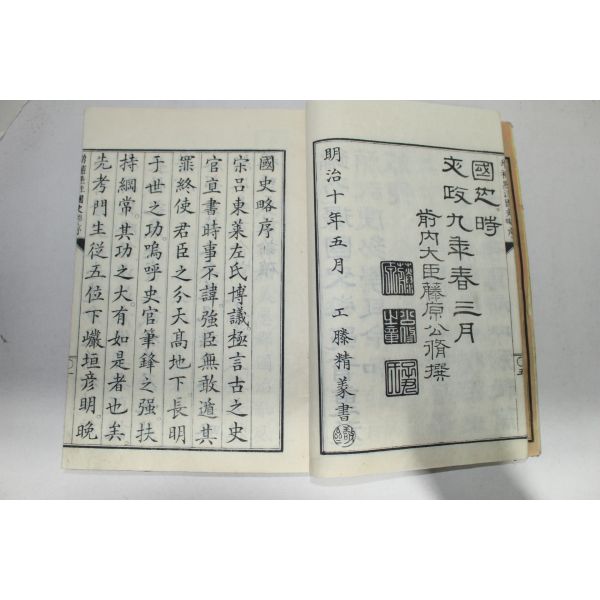 國也時
文政九年春三月
前内大臣藤原公脩撰
明治十年五月
工藤精篆書
國史略序
宋呂東萊左氏博議極言古之史
官直書時事不諱強臣無敢遁其
罪終使君臣之分天高地下長明
于世之功嗚呼史官筆鋒之强扶
持綱常其功之大有如是者也矣
先考門生從五位下巖垣彦明晚